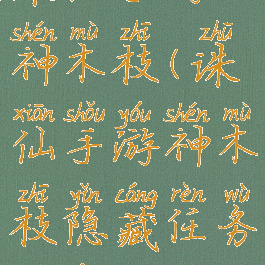 shén mù zhī zhū
神木枝(诛
xiān shǒu yóu shén mù
仙手游神木
zhī yǐn cáng rèn wù
枝隐藏任务